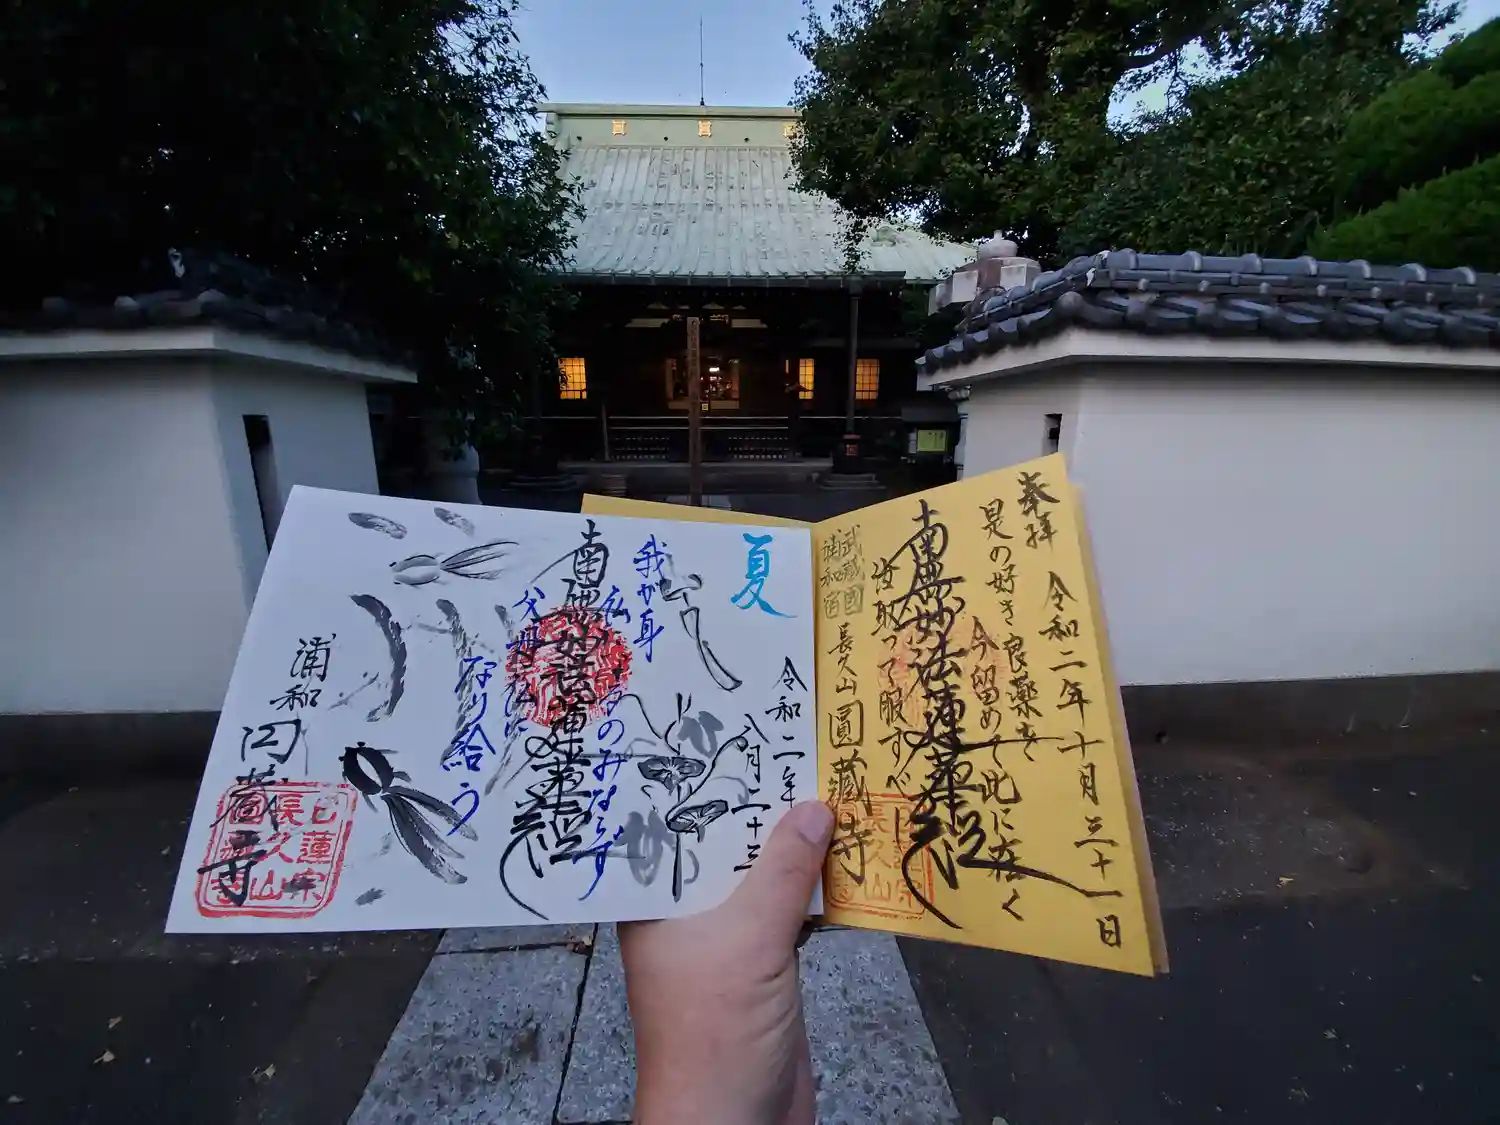 奉拝 令和二年十月三十一日
是の好き良薬を
今留めて此に在く
汝取って服すべし
南無妙法蓮華経
武蔵国
浦和宿
長久山圓蔵寺
夏
令和二年
八月二十三
我が身
仏になるのみならず
南無妙法蓮華経
父母仏に
なり給う
浦和
円蔵寺
日蓮宗
長久山